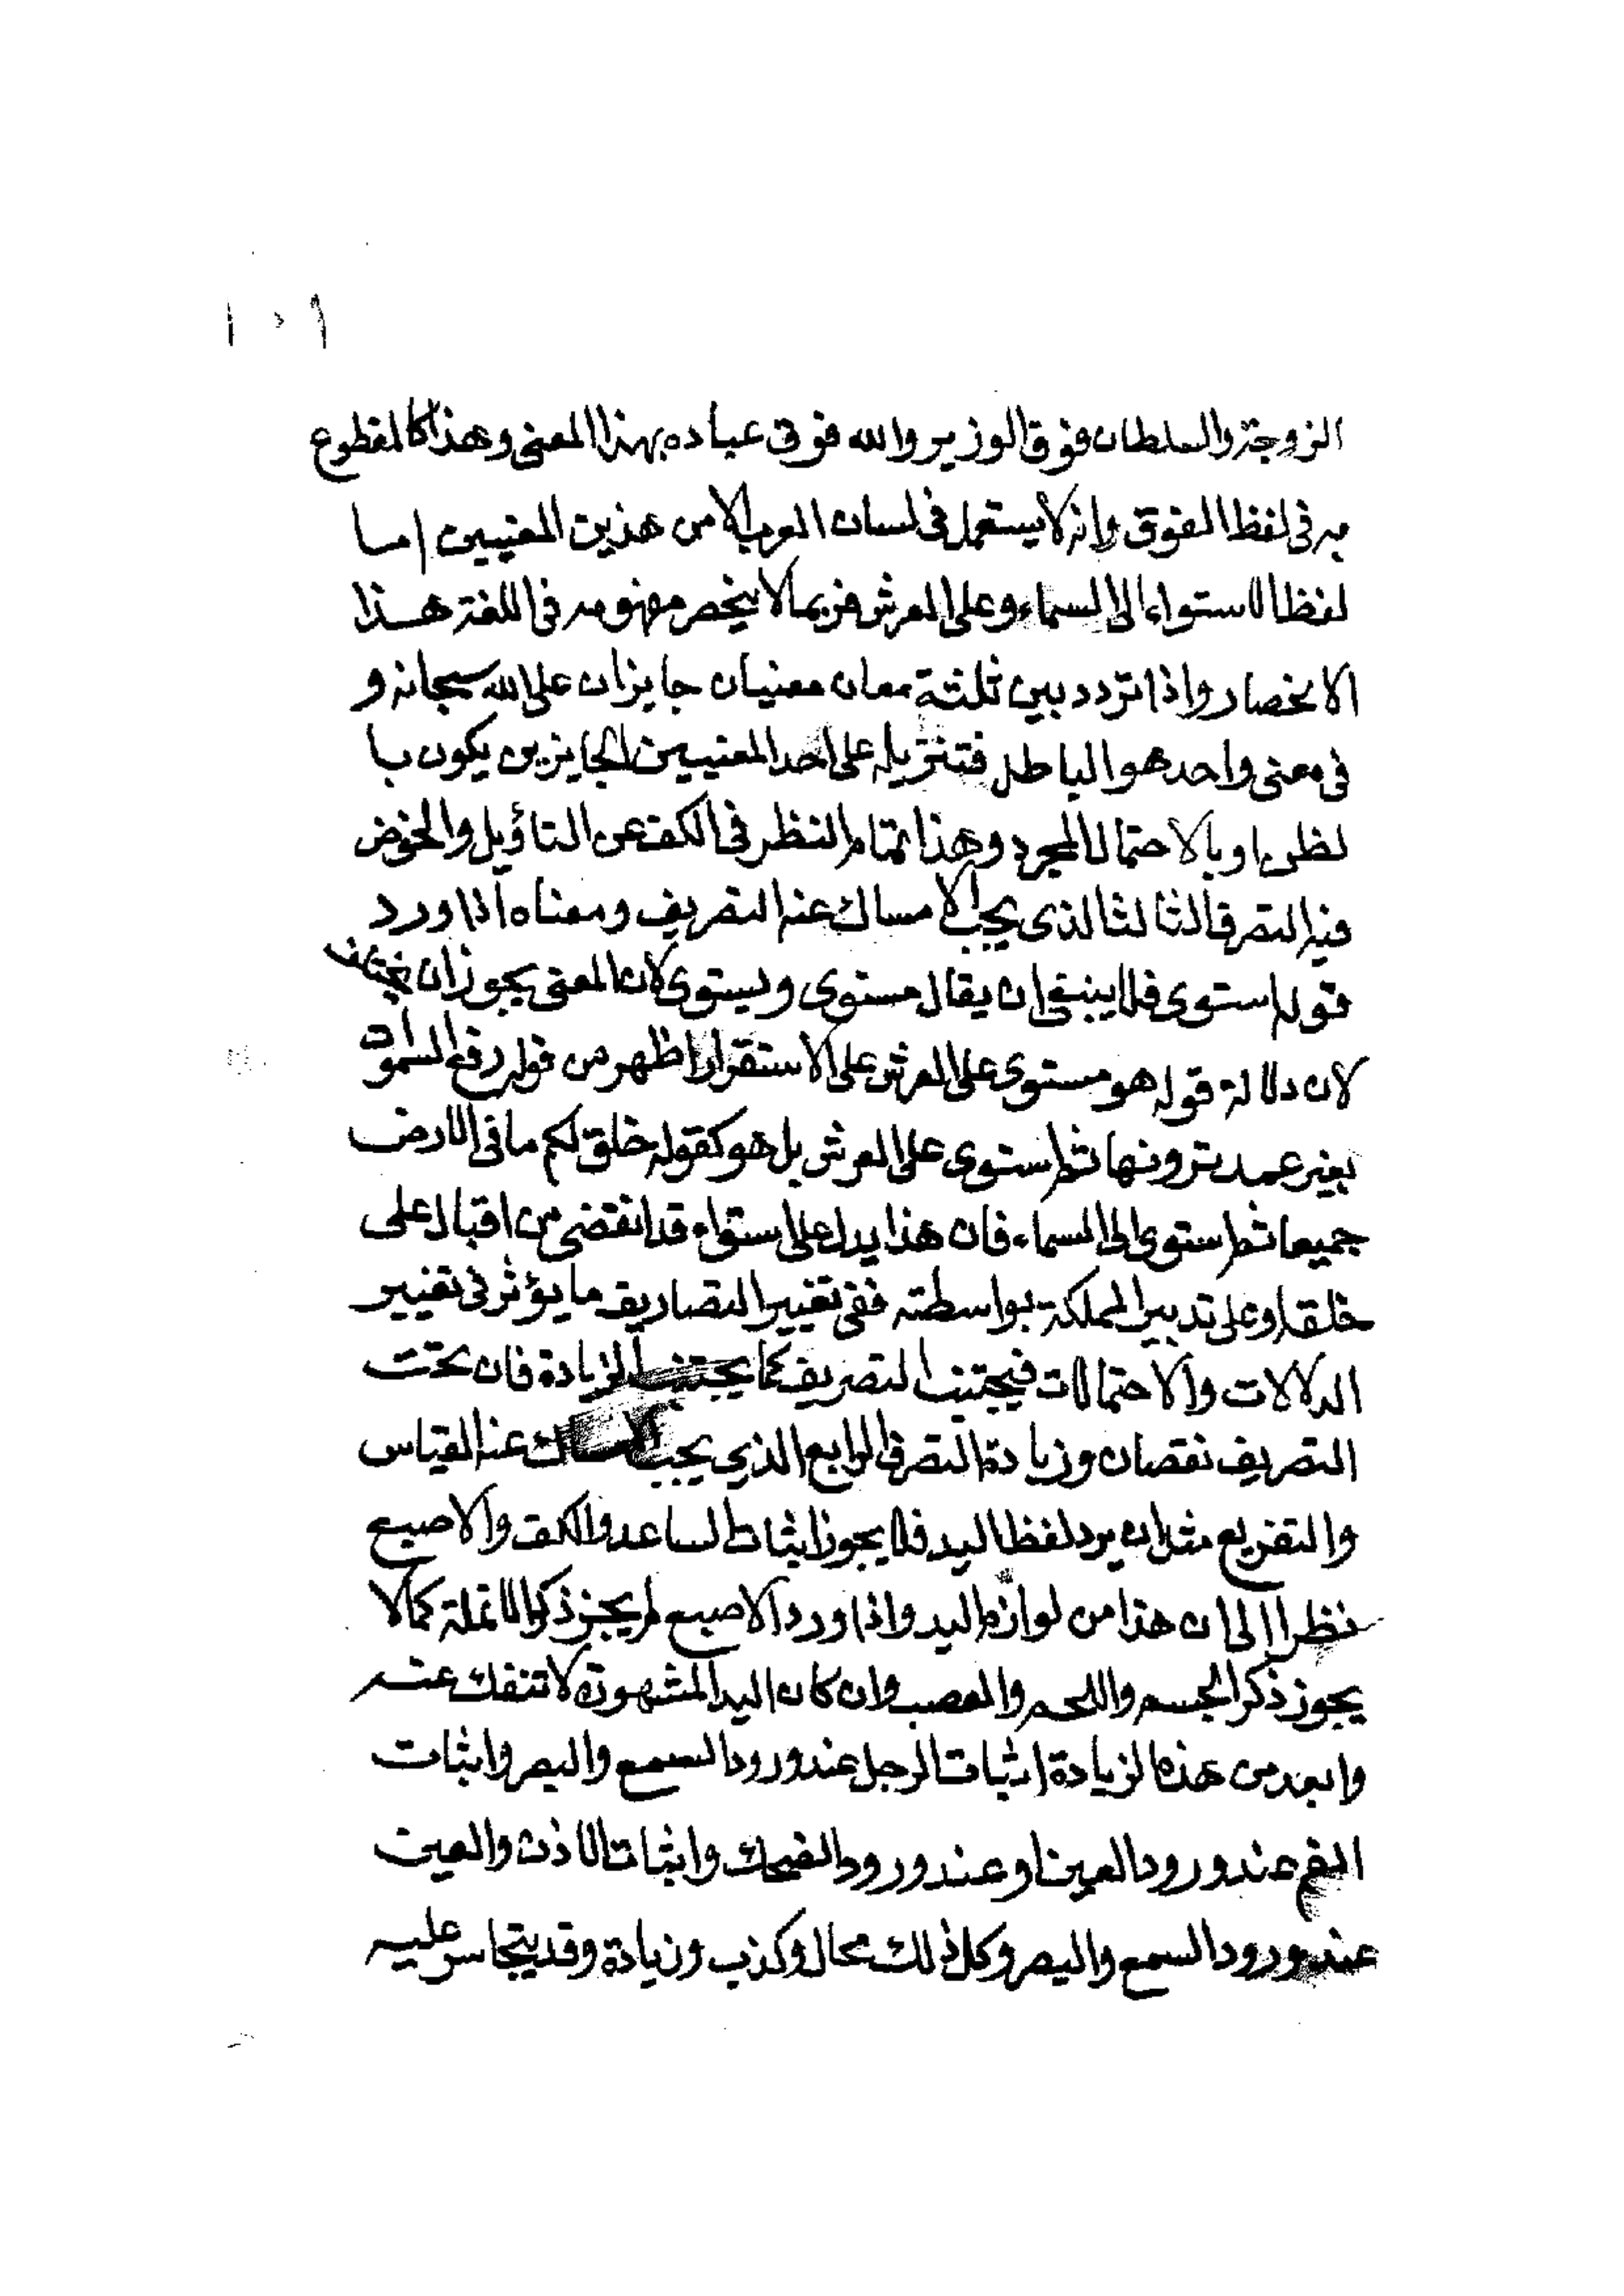 ١٠٩
الزوجة والسلطان فوق الوزير والله فوق عباده بهذا المعنى وهذا كالمقطوع
به فى لفظ الفوق وانه لا يستعمل فى لسان العرب الا من هذين المعنيين اما
لفظ الاستواء الى السماء وعلى العرش فربما لا ينحصر مفهومه فى اللغة هذا
الانحصار واذا تردد بين ثلثة معان معنيان جايزان على الله سبحانه و
فى معنى واحد هو الباطل فتنزيله على احد المعنيين الجايزين يكون با
لظن او بالاحتمال المجرد وهذا تمام النظر فى الكف عن التاؤيل والخوض
فيه التصرف الثالث الذى يجب الامساك عنه التصريف ومعناه اذا ورد
قوله استوى فلا ينبغى ان يقال مستوى ويستوى لان المعنى يجوز ان يختلف
لان دلالة قوله هو مستوى على العرش على الاستقرار اظهر من قوله رفع السموات
بغير عمد ترونها ثم استوى على العرش بل هو كقوله خلق لكم ما فى الارض
جميعا ثم استوى الى السماء فان هذا يدل على استواء قد انقضى من اقبال على
خلقه او على تدبير المملكة بواسطته ففى تغيير التصاريف ما يؤثر فى تغيير
الدلالات والاحتمالات فيجتنب التصريف كما يجتنب الزيادة فان تحت
التصريف نقصان وزيادة التصرف الرابع الذي يجب الامساك عنه القياس
والتفريع مثل ان يرد لفظ اليد فلا يجوز اثبات الساعد والكف والاصبع
نظرا الى ان هذا من لوازم اليد واذا ورد الاصبع لم يجز ذكر الانملة كما لا
يجوز ذكر الجسم واللحم والعصب وان كان اليد المشهورة لا تنفك عنه
وابعد من هذه الزيادة اثبات الرجل عند ورود السمع والبصر واثبات
الفم عند ورود العين او عند ورود الضحك واثبات الاذن والعين
عند ورود السمع والبصر وكل ذلك محال وكذب وزيادة وقد يتجاسر عليه